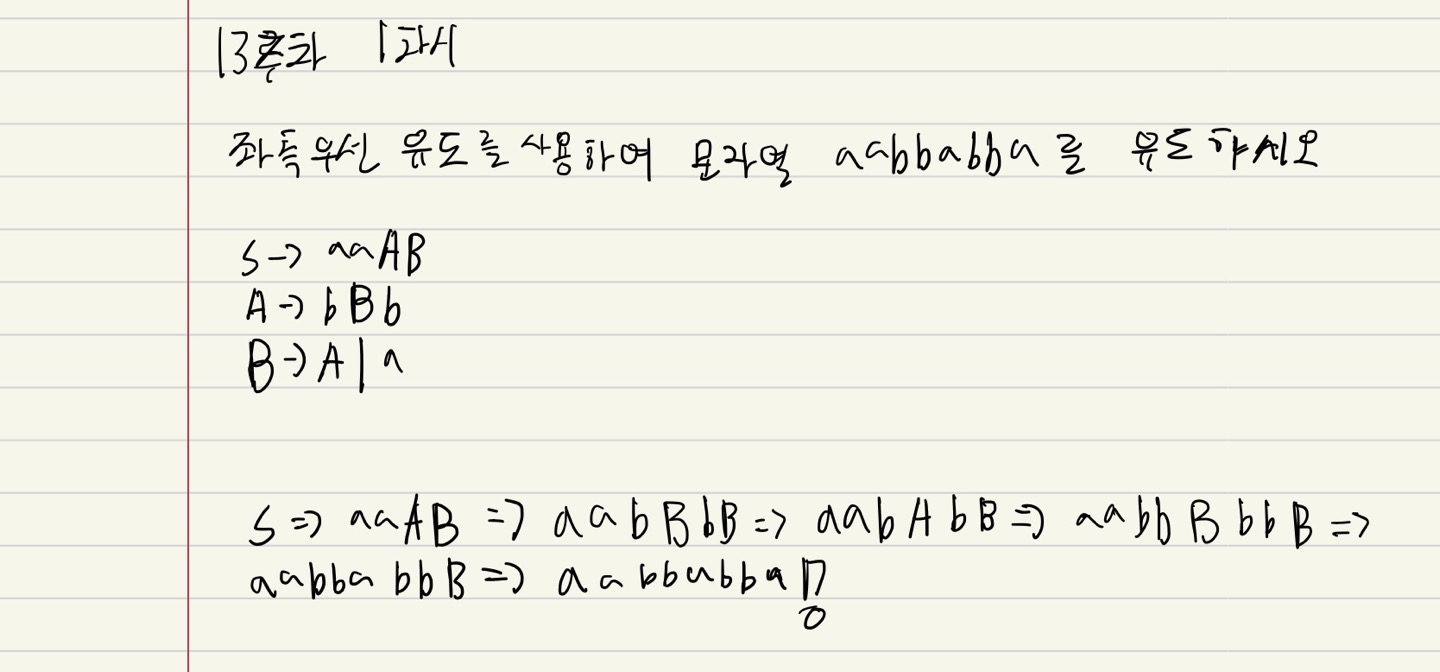 13주차 1과시
좌측우선 유도를 사용하여 문자열 aabbabba를 유도하시오
S -> aaAB
A -> bBb
B -> A | a
S => aaAB => aabBbB => aabAbB => aabbBbbB =>
aabbabbB => aabbabba